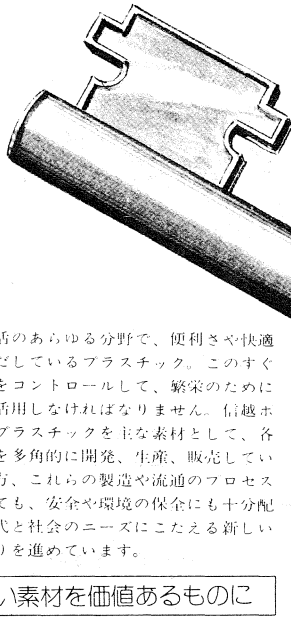 活のあらゆる分野で、便利さや快適
だしているプラスチック。このすぐ
をコントロールして、繁栄のために
活用しなければなりません。信越ポ
プラスチックを主な素材として、各
を多角的に開発、生産、販売してい
方、これらの製造や流通のプロセス
ても、安全や環境の保全にも十分配
代と社会のニーズにこたえる新しい
りを進めています。
い素材を価値あるものに